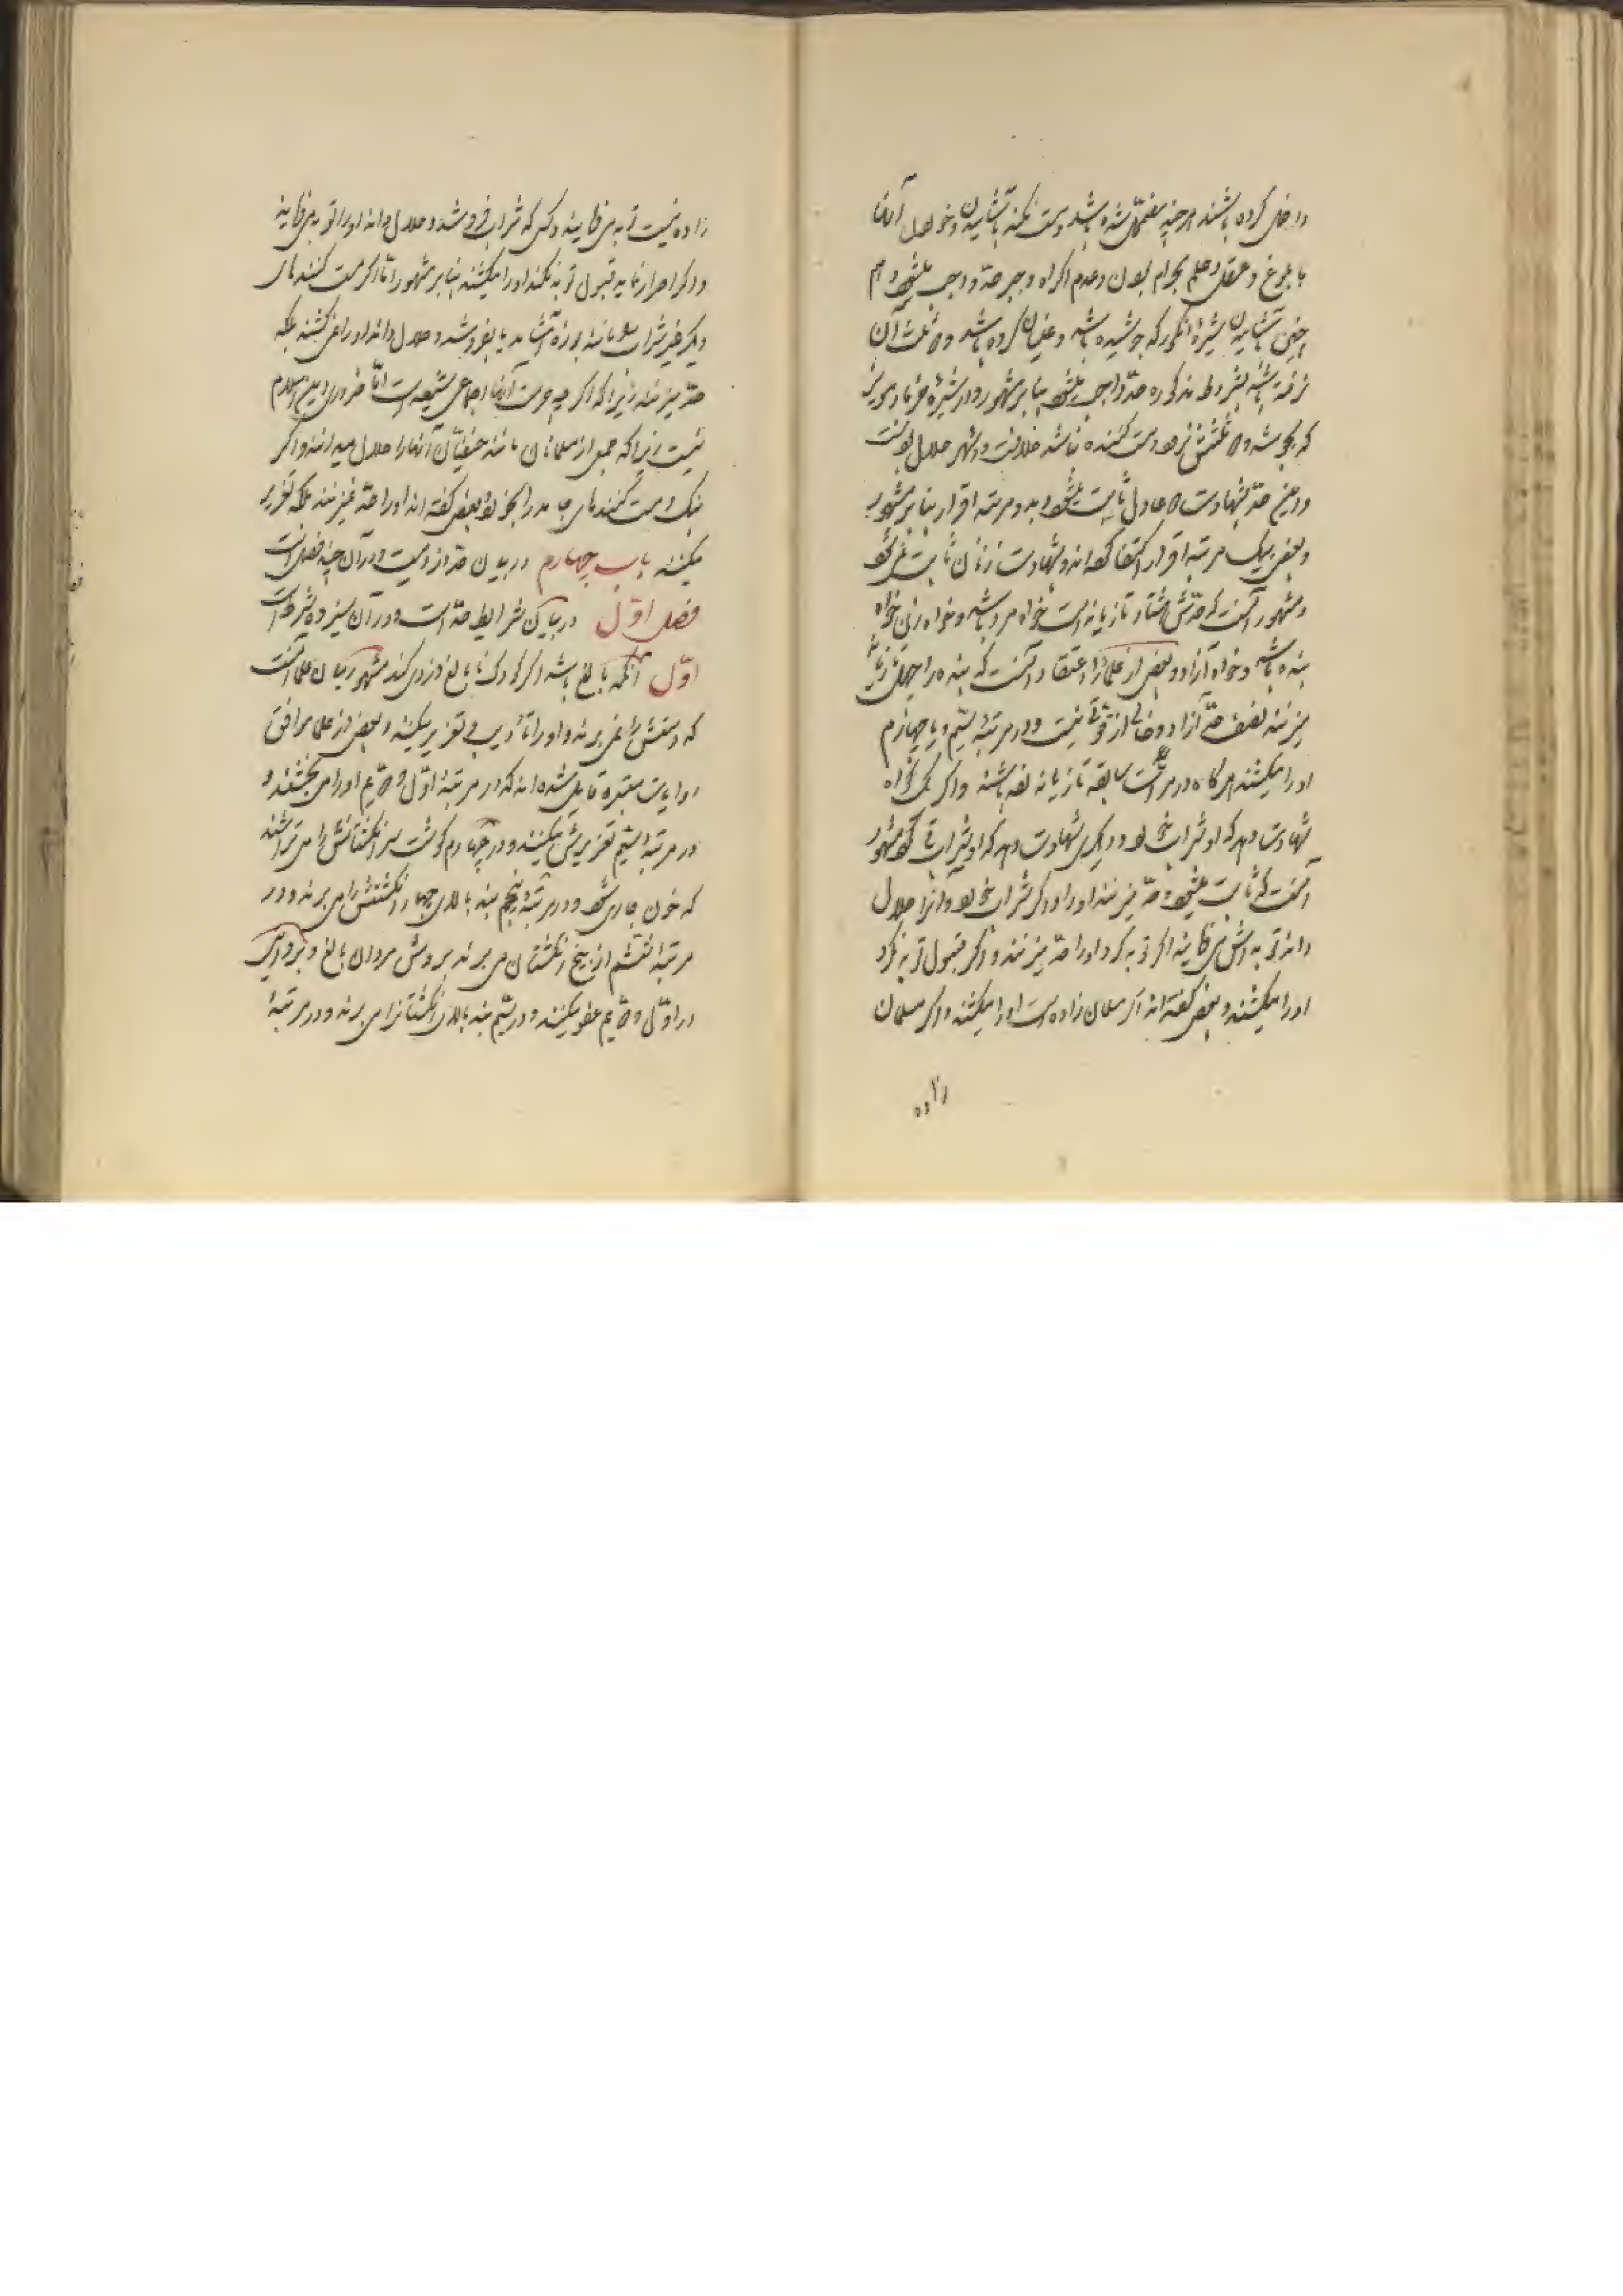 داخل کرده باشند هرچند مضمحل شده باشد و مست نکند باشامیدن و خوردن آنها
با بلوغ و عقل و علم بحرام بودن و عدم اکراه و جبر حد واجب میشود و هم
چنین باشامیدن شیرهٔ انگور که جوشیده باشد و غلیان کرده باشد و دو ثلث آن
نرفته باشد بشروط مذکوره حد واجب میشود بنا بر مشهور و در شیرهٔ خرما و مویز
که بجوشد و دو ثلثش نرود و مست کننده نباشد خلافست و اشهر حلال بودنست
و این حد بشهادت دو عادل ثابت میشود و بدو مرتبه اقرار بنا بر مشهور
و بعضی بیک مرتبه اقرار اکتفا کرده اند و بشهادت زنان ثابت نمیشود
و مشهور آنست که حدش هشتاد تازیانه است خواه مرد باشد و خواه زن خواه
بنده باشد و خواه آزاد و بعضی از علما را اعتقاد آنست که بنده را چهل تازیانه
میزنند نصف حد آزاد و خالی از قوتی نیست و در مرتبهٔ سیم و یا چهارم
او را میکشند هرگاه در مراتب سابقه تازیانه زده باشند و اگر یک گواه
شهادت دهد که او شراب خورد و دیگری شهادت دهد که او شراب قی کرد مشهور
آنست که ثابت میشود و حد میزنند او را و اگر شراب خورد و آنرا حلال
داند توبه اش میفرمایند اگر توبه کرد او را حد میزنند و اگر قبول توبه نکرد
او را میکشند و بعضی گفته اند اگر مسلمان زاده است او را میکشند و اگر مسلمان
زاده
زاده نیست توبه میفرمایند و کسی که شراب فروشد و حلال داند او را توبه میفرمایند
و اگر اصرار نماید قبول توبه نکند او را میکشند بنا بر مشهور و اما اگر مست کننده های
دیگر غیر شراب مانند بوزه آشامد یا بفروشد و حلال داند او را نمیکشند بلکه
حد میزنند زیرا که اگر چه حرمت آنها اجماعی شیعه است اما ضروری دین اسلام
نیست زیرا که جمعی از مسلمانان مانند حنفیان آنها را حلال میدانند و اگر
بنگ و مست کننده های جامد را بخورد بعضی گفته اند او را حد نمیزنند بلکه تعزیر
میکنند باب چهارم در بیان حد دزدیست و در آن چند فصل است
فصل اول در بیان شرایط حد است و در آن سیزده شرط است
اول آنکه بالغ باشد اگر کودک نابالغ دزدی کند مشهور میان علما آنست
که دستش را نمیبرند و او را تأدیب و تعزیر میکنند و بعضی از علما موافق
روایات معتبره قایل شده اند که در مرتبهٔ اول و دویم او را میبخشند و
در مرتبهٔ سیم تعزیرش میکنند و در چهارم گوشت سر انگشتانش را میتراشند
که خون جاری شود و در مرتبهٔ پنجم بند بالای چهار انگشتش را میبرند و در
مرتبهٔ ششم از بیخ انگشتان میبرند بروش مردان بالغ و بروایتی
در اول و دویم عفو میکنند و در سیم بند بالای انگشتانرا میبرند و در مرتبهٔ